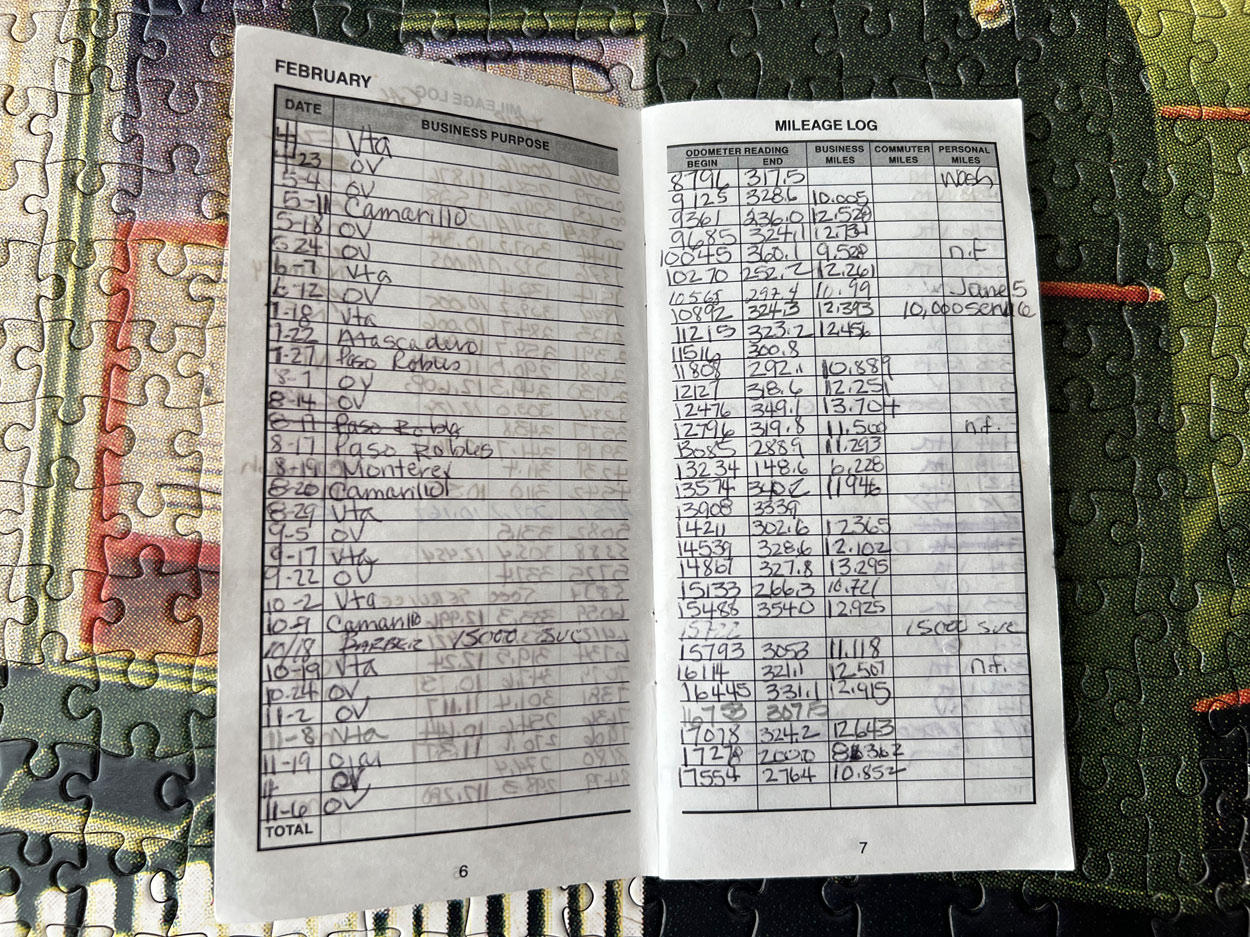 FEBRUARY
DATE BUSINESS PURPOSE
Vta
4-23 OV
5-4 OV
5-11 Camarillo
5-18 OV
5-24 OV
6-7 Vta
6-12 OV
7-18 Vta
7-22 Atascadero
7-27 Paso Robles
8-7 OV
8-14 OV
8-17 Paso Robles
8-17 Paso Robles
8-19 Monterey
8-20 Camarillo
8-29 Vta
9-5 OV
9-17 Vta
9-22 OV
10-2 Vta
10-9 Camarillo
10/18 BARBER 15000 SVC
10-19 Vta
10-24 OV
11-2 OV
11-8 Vta
11-19 Ojai
11 OV
11-16 OV
TOTAL
6
MILEAGE LOG
ODOMETER READING BUSINESS MILES COMMUTER MILES PERSONAL MILES
BEGIN END
8796 317.5 Wash
9125 328.6 10.005
9361 236.0 12.529
9685 324.1 12.734
10045 360.1 9.528 n.f
10270 252.2 12.261
10565 297.4 10.99 June 5
10892 324.3 12.393 10,000 service
11215 323.2 12.456
11516 300.8
11808 292.1 10.889
12127 318.6 12.251
12476 349.1 13.704
12796 319.8 11.500 n.f.
13085 2889 11.293
13234 148.6 6.228
13574 340.2 11946
13908 3339
14211 302.6 12365
14539 328.6 12.102
14867 327.8 13.295
15133 266.3 10.721
15488 3540 12.925
15722 15000 svc
15793 3053 11.118
16114 321.1 12.507 n.f.
16445 331.1 12.915
16753 307.5
17078 324.2 12643
17278 200.0 8.362
17554 2764 10.852
7